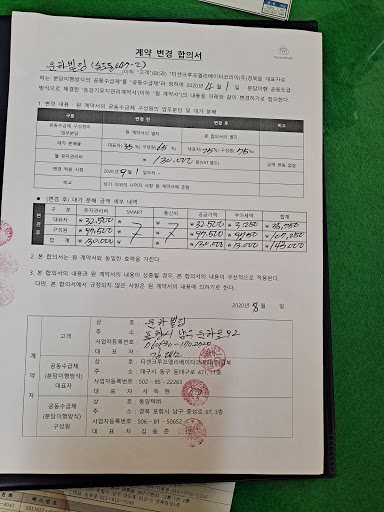 계약 변경 합의서
운하빌딩
(이하 "고객")과(와) "티센크루프엘리베이터코리아(주)경북을 대표자로
하는 분담이행방식의 공동수급체"를 "공동수급체"라 칭하여 2020년 4월 1일 분담이행 공동도급
방식으로 체결한 "승강기유지관리계약서(이하 "원 계약서")의 내용을 아래와 같이 변경하기로 합의한다.
1. 변경 내용 : 원 계약서의 공동수급체 구성원의 업무분담 및 대가 분배
구분 변경 전 변경 후 비고
공동수급체 구성원의 업무분담 원 계약서의 별지 본 합의서의 별지
대가 분배율 대표자( %) 구성원( %) 대표자( %) 구성원( %)
월 유지관리비 ₩ 130,000 원(VAT 별도) 금액 변동 없음
변경 적용 시점 2020년 9월 1일부터 ~
비고 상기 이외의 나머지 사항 원 계약서에 준함
● (변경 후) 대가 분배 금액 세부 내역
변경후 구 분 유지관리비 SMART 통신비 공급가액 부가세액 합계
대표자 ₩ 32,500 ₩ 32,500 ₩ 3,250 ₩ 35,750
구성원 ₩ 97,500 ₩ 97,500 ₩ 9,750 ₩ 107,250
합 계 ₩ 130,000 ₩ 130,000 ₩ 13,000 ₩ 143,000
2. 본 합의서는 원 계약서와 동일한 효력을 가진다.
3. 본 합의서의 내용과 원 계약서의 내용이 상충될 경우, 본 합의서의 내용이 우선적으로 적용된다.
다만, 본 합의서에 규정되지 않은 사항은 원 계약서의 내용에 의하기로 한다.
2020년 8월 일
계약자
고객
상 호 : 운하빌딩
주 소 : 포항시 남구 운하로 92
사업자등록번호 :
대 표 자 :
공동수급체 (분담이행방식) 대표자
상 호 : 티센크루프엘리베이터코리아(주)경북
주 소 : 대구시 동구 동대구로 471, 11층
사업자등록번호 : 502 - 85 - 22263
대 표 자 : 서 득 현
공동수급체 (분담이행방식) 구성원
상 호 : 동양택㈜
주 소 : 경북 포항시 남구 중섬로 67, 3층
사업자등록번호 : 506 - 81 - 50652
대 표 자 : 김 동 준